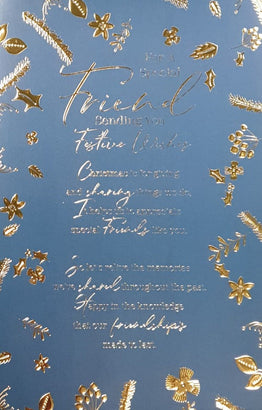 For a
Special
Friend
Sending You
Festive Wishes
Christmas is for giving
and sharing
special Friends like you
So let's relive the memories
we've shared throughout the past,
Happy in the knowledge
that our friendship's
made to last.